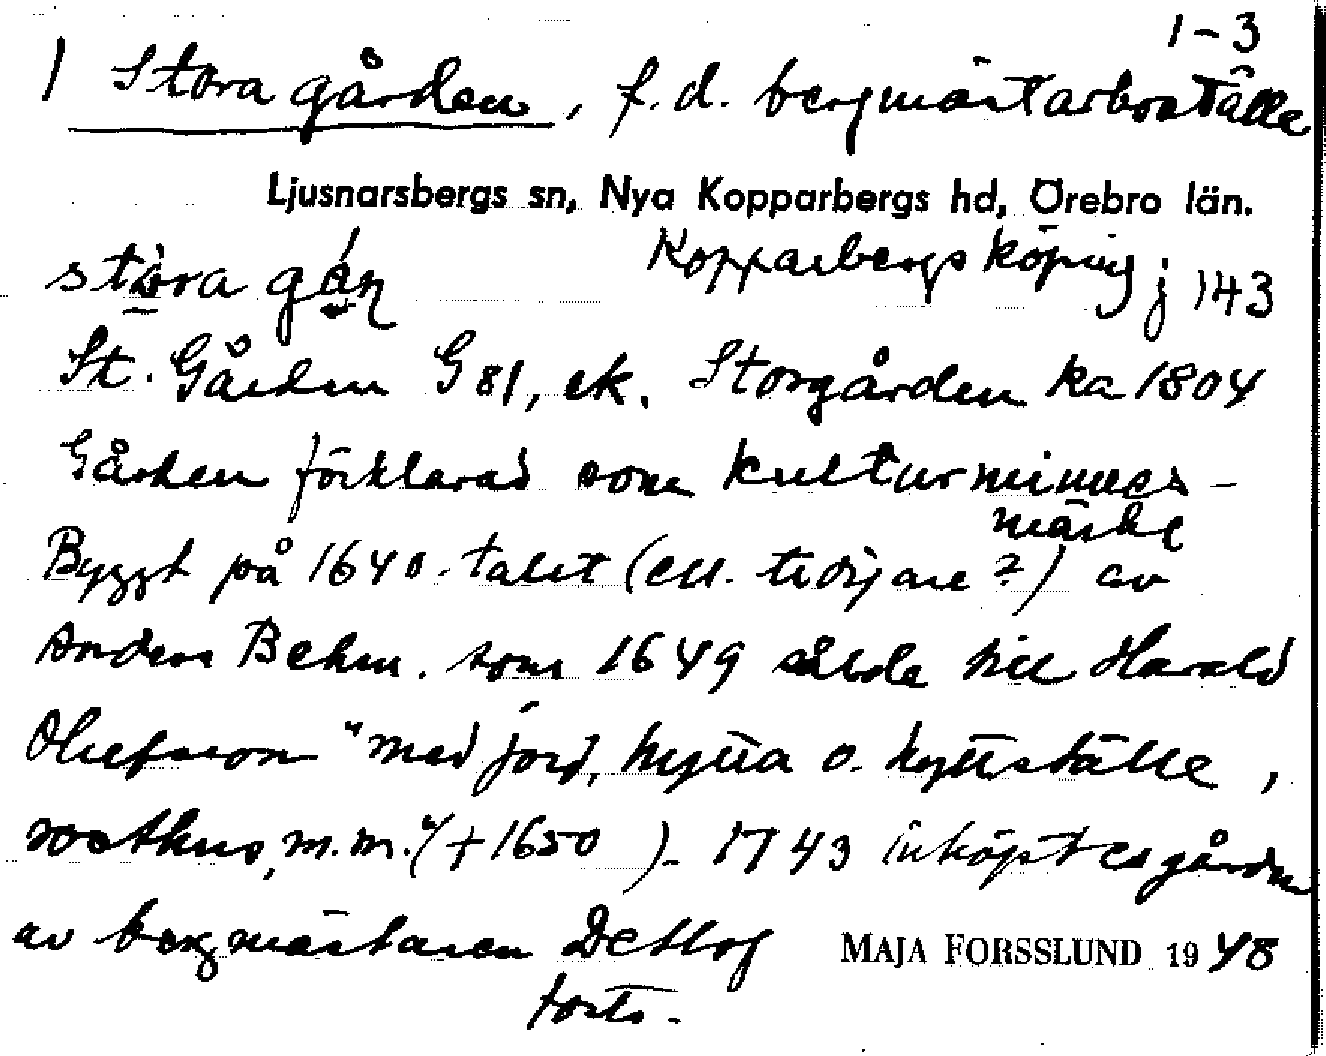 1-3
1 Stora gården, f.d. bergmästarboställe
Ljusnarsbergs sn, Nya Kopparbergs hd, Örebro län.
Kopparbergs köping j 143
stòra gán
St. Gården G 81, ek. Storgården ka 1804
Gården förklarad som kulturminnes-
märke
Byggt på 1640-talet (ell. tidigare?) av
Anders Behm. som 1649 sålde till Harald
Olufsson "med jord, hytta o. hytteställe,
rosthus, m.m." (+ 1650). 1743 inköptes gården
av bergmästaren Detlof
MAJA FORSSLUND 1948
forts.